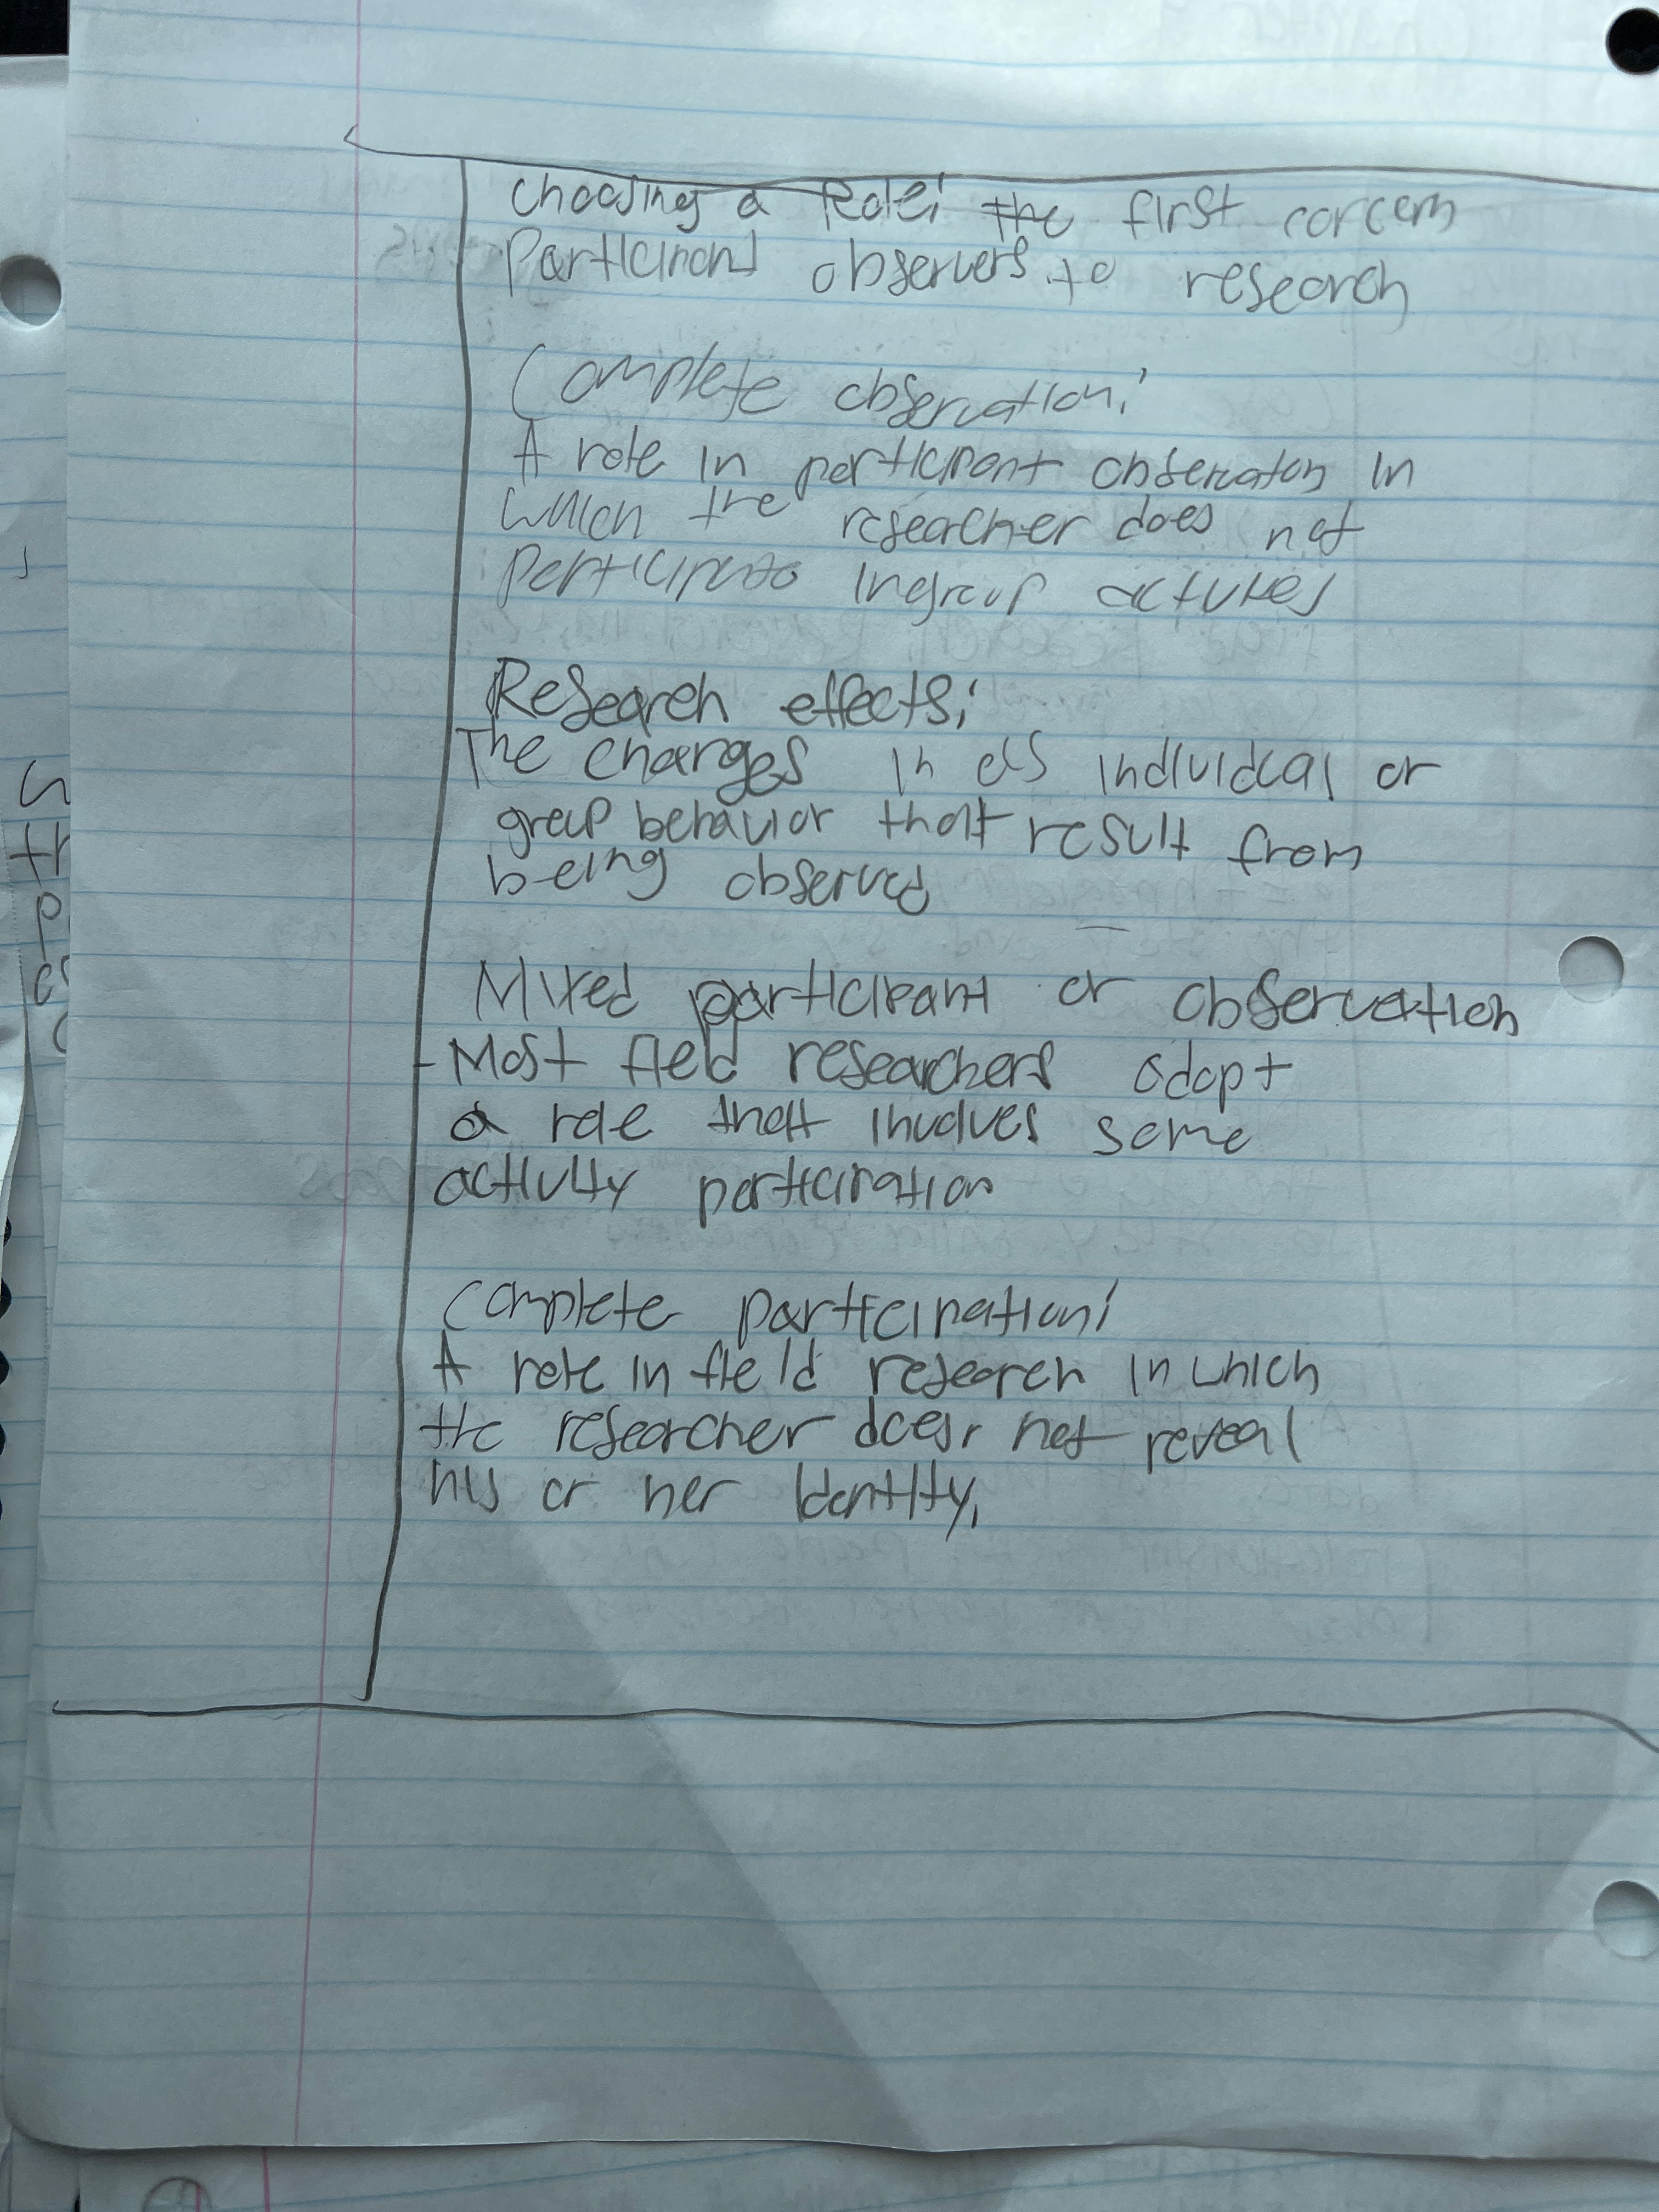 choosing a Role: the first concern
Participant observers to research
Complete observation:
A role in participant observation in
which the researcher does not
participate in group
Research effects:
The changes in individual or
group behavior that result from
being observed
Mixed participant or observation
- Most field researchers adopt
a role that involves some
activity participation
Complete participation:
A role in field research in which
the researcher does not reveal
his or her identity.